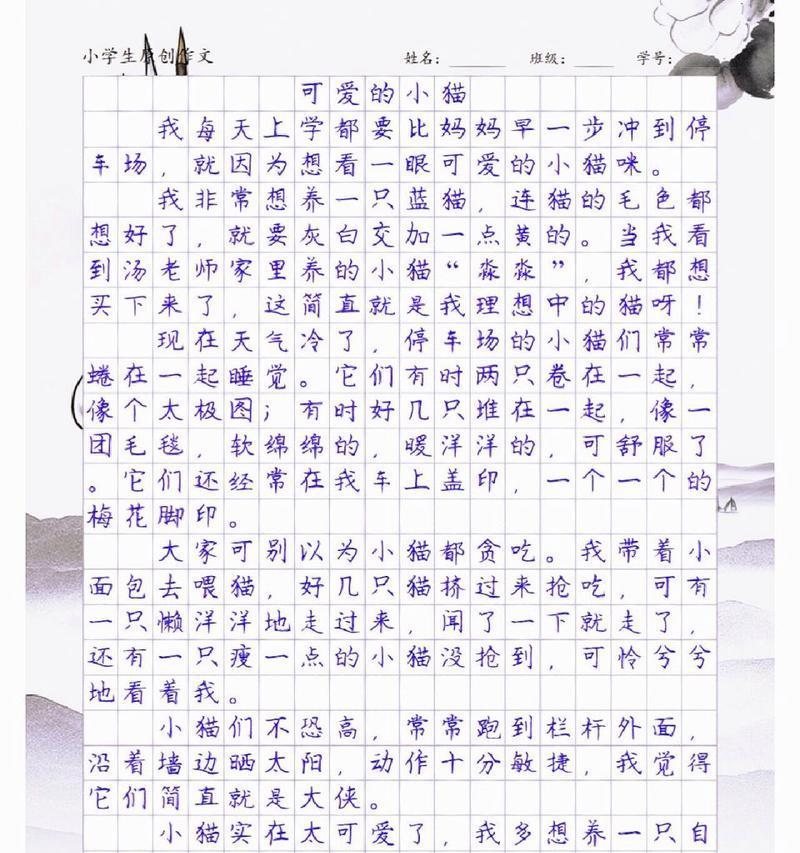 小学生原创作文 姓名： 班级： 学号：
可爱的小猫
我每天上学都要比妈妈早一步冲到停
车场，就因为想看一眼可爱的小猫咪。
我非常想养一只蓝猫，连猫的毛色都
想好了，就要灰白交加一点黄的。当我看
到汤老师家里养的小猫“淼淼”，我都想
买下来了，这简直就是我理想中的猫呀！
现在天气冷了，停车场的小猫们常常
蜷在一起睡觉。它们有时两只卷在一起，
像个太极图；有时好几只堆在一起，像一
团毛毯，软绵绵的，暖洋洋的，可舒服了
。它们还经常在我车上盖印，一个一个的
梅花脚印。
大家可别以为小猫都贪吃。我带着小
面包去喂猫，好几只猫挤过来抢吃，可有
一只懒洋洋地走过来，闻了一下就走了，
还有一只瘦一点的小猫没抢到，可怜兮兮
地看着我。
小猫们不恐高，常常跑到栏杆外面，
沿着墙边晒太阳，动作十分敏捷，我觉得
它们简直就是大侠。
小猫实在太可爱了，我多想养一只自